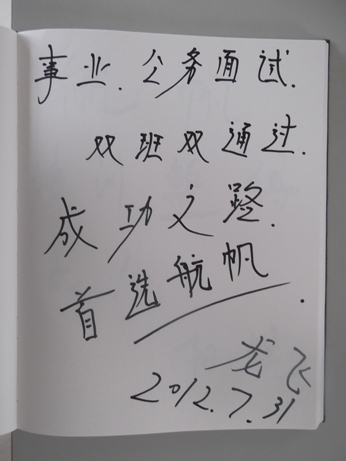 事业.公务面试.
双班双通过.
成功之路.
首选航帆.
龙飞
2012.7.31